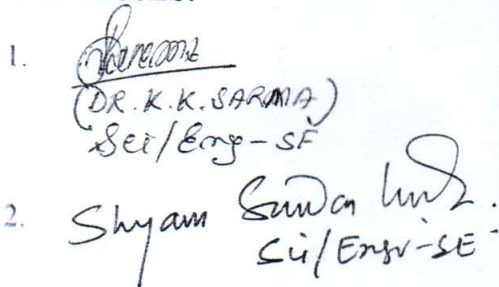 1.
(DR. K. K. SARMA)
Sci/Eng-SF
2. Shyam Sundar
Sci/Engr-SE